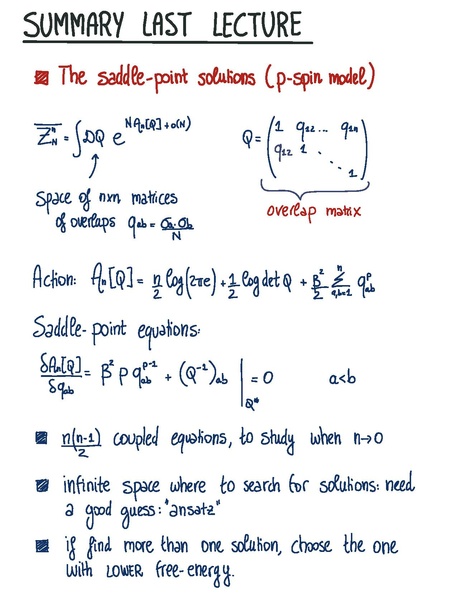 SUMMARY LAST LECTURE
The saddle-point solutions (p-spin model)
\overline{Z_N^n} = ∫DQ e^{N A_n[Q] + o(N)}    Q = (1 q_{12} ... q_{1n} / q_{12} 1 ⋱ / ⋱ 1)
Space of nxn matrices
of overlaps q_{ab} = \frac{σ_a·σ_b}{N}
overlap matrix
Action: A_n[Q] = \frac{n}{2} log(2πe) + \frac{1}{2} log det Q + \frac{β^2}{2} \sum_{a,b=1}^{n} q_{ab}^p
Saddle-point equations:
\frac{δA_n[Q]}{δq_{ab}} = β^2 p q_{ab}^{p-1} + (Q^{-1})_{ab} |_{Q*} = 0    a<b
\frac{n(n-1)}{2} coupled equations, to study when n→0
infinite space where to search for solutions: need
a good guess: "ansatz"
if find more than one solution, choose the one
with LOWER free-energy.